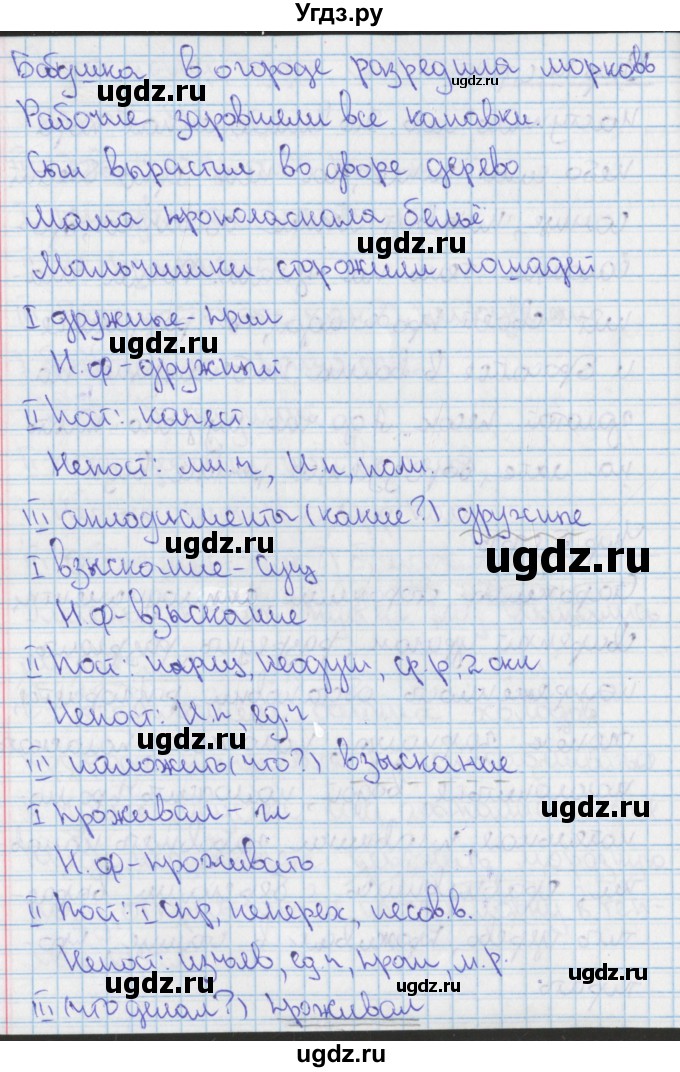 Угдз.ру
Бабушка в огороде разредила морковь
ugdz.ru ugdz.ru
Рабочие заровняли все канавки.
Сын вырастил во дворе дерево
Мама прополаскала бельё
ugdz.ru
Мальчишки сторожили лошадей
I дружные - прил
ugdz.ru
Н.ф - дружный
II Пост: качест.
Непост: мн.ч, И.п, полн.
III аплодисменты (какие?) дружные
ugdz.ru ugdz.ru
I взыскание - сущ
Н.ф - взыскание
II Пост: нариц, неодуш, ср.р, 2 скл
Непост: И.п, ед.ч
ugdz.ru
III наложить (что?) взыскание
I проживал - гл
ugdz.ru
Н.ф - проживать
II Пост: I спр, неперех, несов.в.
Непост: изъяв, ед.ч, прош, м.р.
ugdz.ru ugdz.ru
III (что делал?) проживал
ugdz.ru